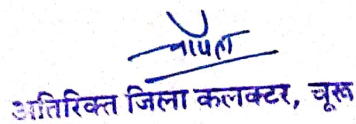 अतिरिक्त जिला कलक्टर, चूरू